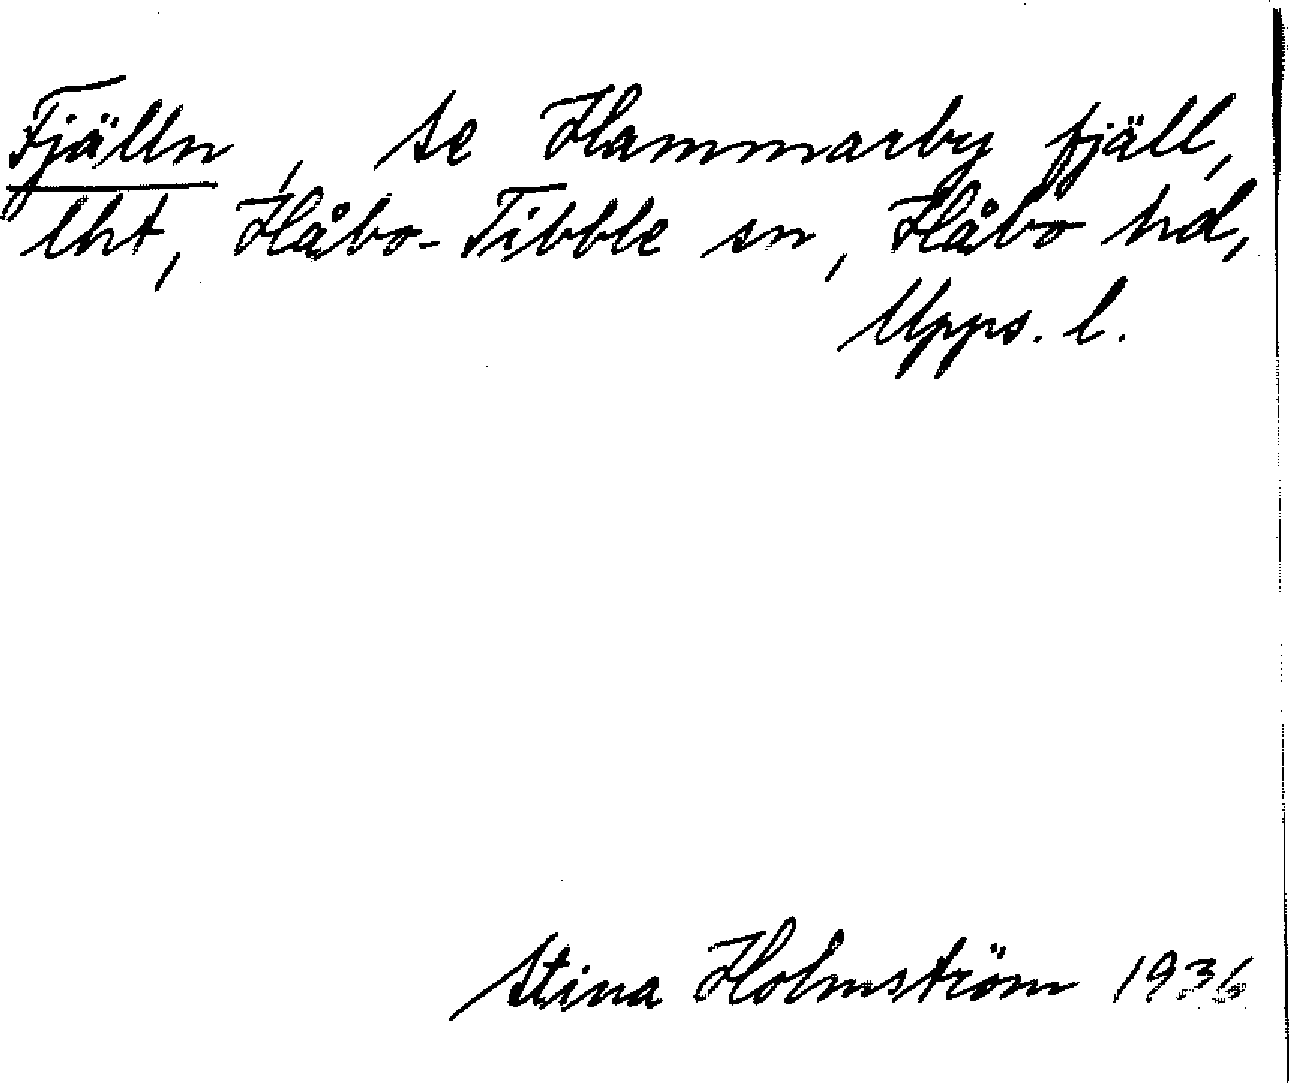 Fjälln, se Hammarby fjäll,
lht, Håbo-Tibble sn, Håbo hd,
Upps. l.
Stina Holmström 1936